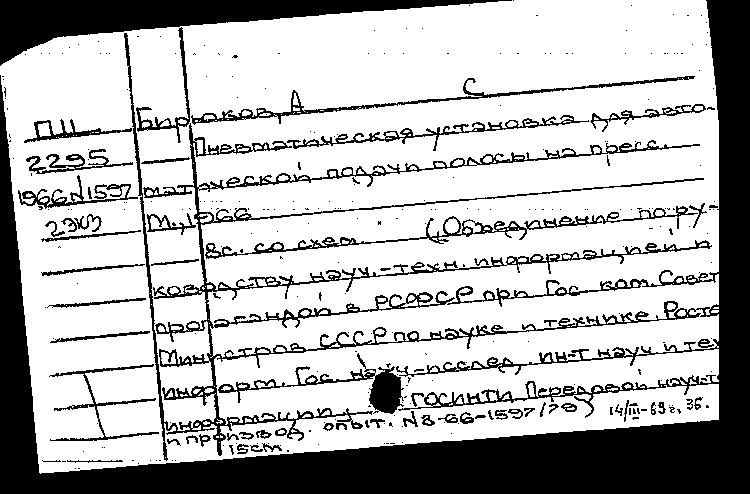 ПЦ Бирюков, А С
2295 Пневматическая установка для авто-
1966N1597 матической подачи полосы на пресс.
2экз М., 1966
8с. со схем. (Объединение по ру-
ководству науч.-техн. информацией и
пропагандой в РСФСР при Гос. ком. Совет
Министров СССР по науке и технике. Росте
информ. Гос. науч-исслед. ин-т науч и тех
информации, ГОСИНТИ Передовой науч-т
и производ. опыт. N8-66-1597/79) 14/III-69г. 36.
15см.